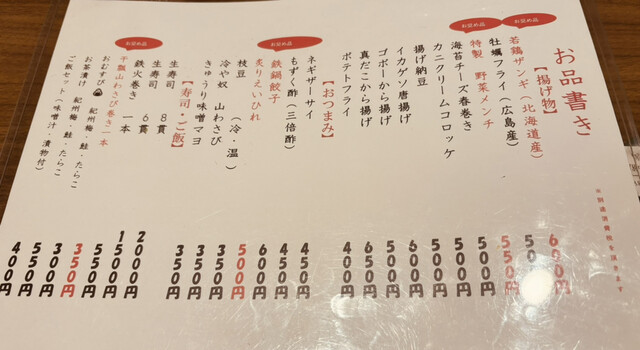 お品書き
※別途消費税を頂きます
【揚げ物】
若鶏ザンギ（北海道産）
600円
牡蠣フライ（広島産）
特製 野菜メンチ
550円
海苔チーズ春巻き
500円
カニクリームコロッケ
500円
揚げ納豆
400円
イカゲソ唐揚げ
500円
ゴボーから揚げ
真だこから揚げ
600円
ポテトフライ
400円
【おつまみ】
ネギザーサイ
450円
もずく酢（三倍酢）
450円
鉄鍋餃子
600円
炙りえいひれ
500円
枝豆 （冷・温）
350円
冷や奴 山わさび
350円
きゅうり味噌マヨ
350円
【寿司・ご飯】
生寿司 8貫
2000円
生寿司 6貫
1500円
鉄火巻き 一本
550円
干瓢山わさび巻き一本
350円
おむすび 紀州梅・鮭・たらこ
300円
お茶漬け 紀州梅・鮭・たらこ
550円
ご飯セット（味噌汁・漬物付）
400円
お奨め品
お奨め品
お奨め品
お奨め品